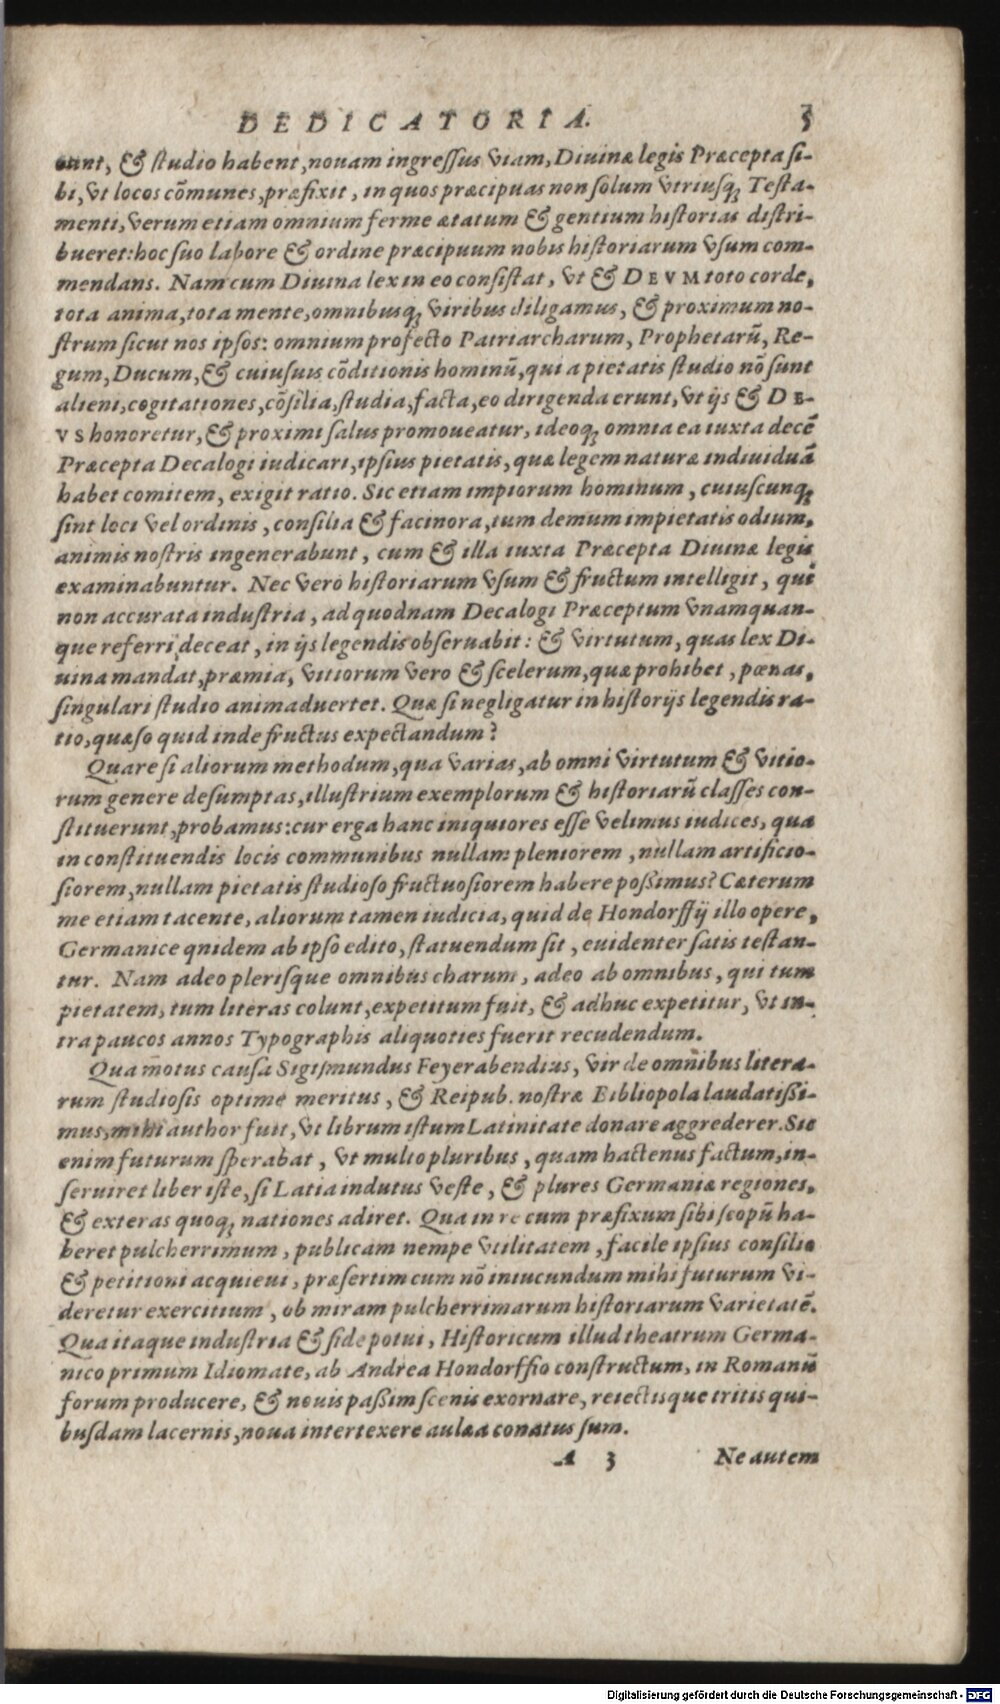 DEDICATORIA. 5
unt, & ſtudio habent, nouam ingreſſus viam, Diuinæ legis Præcepta ſi-
bi, vt locos cōmunes, præfixit, in quos præcipuas non ſolum vtriuſq; Teſta-
menti, verum etiam omnium ferme ætatum & gentium hiſtorias diſtri-
bueret: hoc ſuo labore & ordine præcipuum nobis hiſtoriarum vſum com-
mendans. Nam cum Diuina lex in eo conſiſtat, vt & DEVM toto corde,
tota anima, tota mente, omnibusq; viribus diligamus, & proximum no-
ſtrum ſicut nos ipſos: omnium profecto Patriarcharum, Prophetarū, Re-
gum, Ducum, & cuiuſuis cōditionis hominū, qui a pietatis ſtudio nō ſunt
alieni, cogitationes, cōſilia, ſtudia, facta, eo dirigenda erunt, vt ijs & DE-
VS honoretur, & proximi ſalus promoueatur, ideoq; omnia ea iuxta decē
Præcepta Decalogi iudicari, ipſius pietatis, quæ legem naturæ indiuiduā
habet comitem, exigit ratio. Sic etiam impiorum hominum, cuiuſcunq;
ſint loci vel ordinis, conſilia & facinora, tum demum impietatis odium,
animis noſtris ingenerabunt, cum & illa iuxta Præcepta Diuinæ legis
examinabuntur. Nec vero hiſtoriarum vſum & fructum intelligit, qui
non accurata induſtria, ad quodnam Decalogi Præceptum vnamquan-
que referri deceat, in ijs legendis obſeruabit: & virtutum, quas lex Di-
uina mandat, præmia, vitiorum vero & ſcelerum, quæ prohibet, pœnas,
ſingulari ſtudio animaduertet. Quæ ſi negligatur in hiſtorijs legendis ra-
tio, quæſo quid inde fructus expectandum?
Quare ſi aliorum methodum, qua varias, ab omni virtutum & vitio-
rum genere deſumptas, illuſtrium exemplorum & hiſtoriarū claſſes con-
ſtituerunt, probamus: cur erga hanc iniquiores eſſe velimus iudices, qua
in conſtituendis locis communibus nullam pleniorem, nullam artificio-
ſiorem, nullam pietatis ſtudioſo fructuoſiorem habere poſſimus? Cæterum
me etiam tacente, aliorum tamen iudicia, quid de Hondorffij illo opere,
Germanice qnidem ab ipſo edito, ſtatuendum ſit, euidenter ſatis teſtan-
tur. Nam adeo pleriſque omnibus charum, adeo ab omnibus, qui tum
pietatem, tum literas colunt, expetitum fuit, & adhuc expetitur, vt in-
tra paucos annos Typographis aliquoties fuerit recudendum.
Qua motus cauſa Sigiſmundus Feyerabendius, vir de omnibus litera-
rum ſtudioſis optime meritus, & Reipub. noſtræ Bibliopola laudatiſſi-
mus, mihi author fuit, vt librum iſtum Latinitate donare aggrederer. Sic
enim futurum ſperabat, vt multo pluribus, quam hactenus factum, in-
ſeruiret liber iſte, ſi Latia indutus veſte, & plures Germaniæ regiones,
& exteras quoq; nationes adiret. Qua in re cum præfixum ſibi ſcopū ha-
beret pulcherrimum, publicam nempe vtilitatem, facile ipſius conſilio
& petitioni acquieui, præſertim cum nō iniucundum mihi futurum vi-
deretur exercitium, ob miram pulcherrimarum hiſtoriarum varietatē.
Qua itaque induſtria & fide potui, Hiſtoricum illud theatrum Germa-
nico primum Idiomate, ab Andrea Hondorffio conſtructum, in Romanū
forum producere, & nouis paſſim ſcenis exornare, reiectisque tritis qui-
buſdam lacernis, noua intertexere aulæa conatus ſum.
A 3 Ne autem
Digitalisierung gefördert durch die Deutsche Forschungsgemeinschaft - DFG